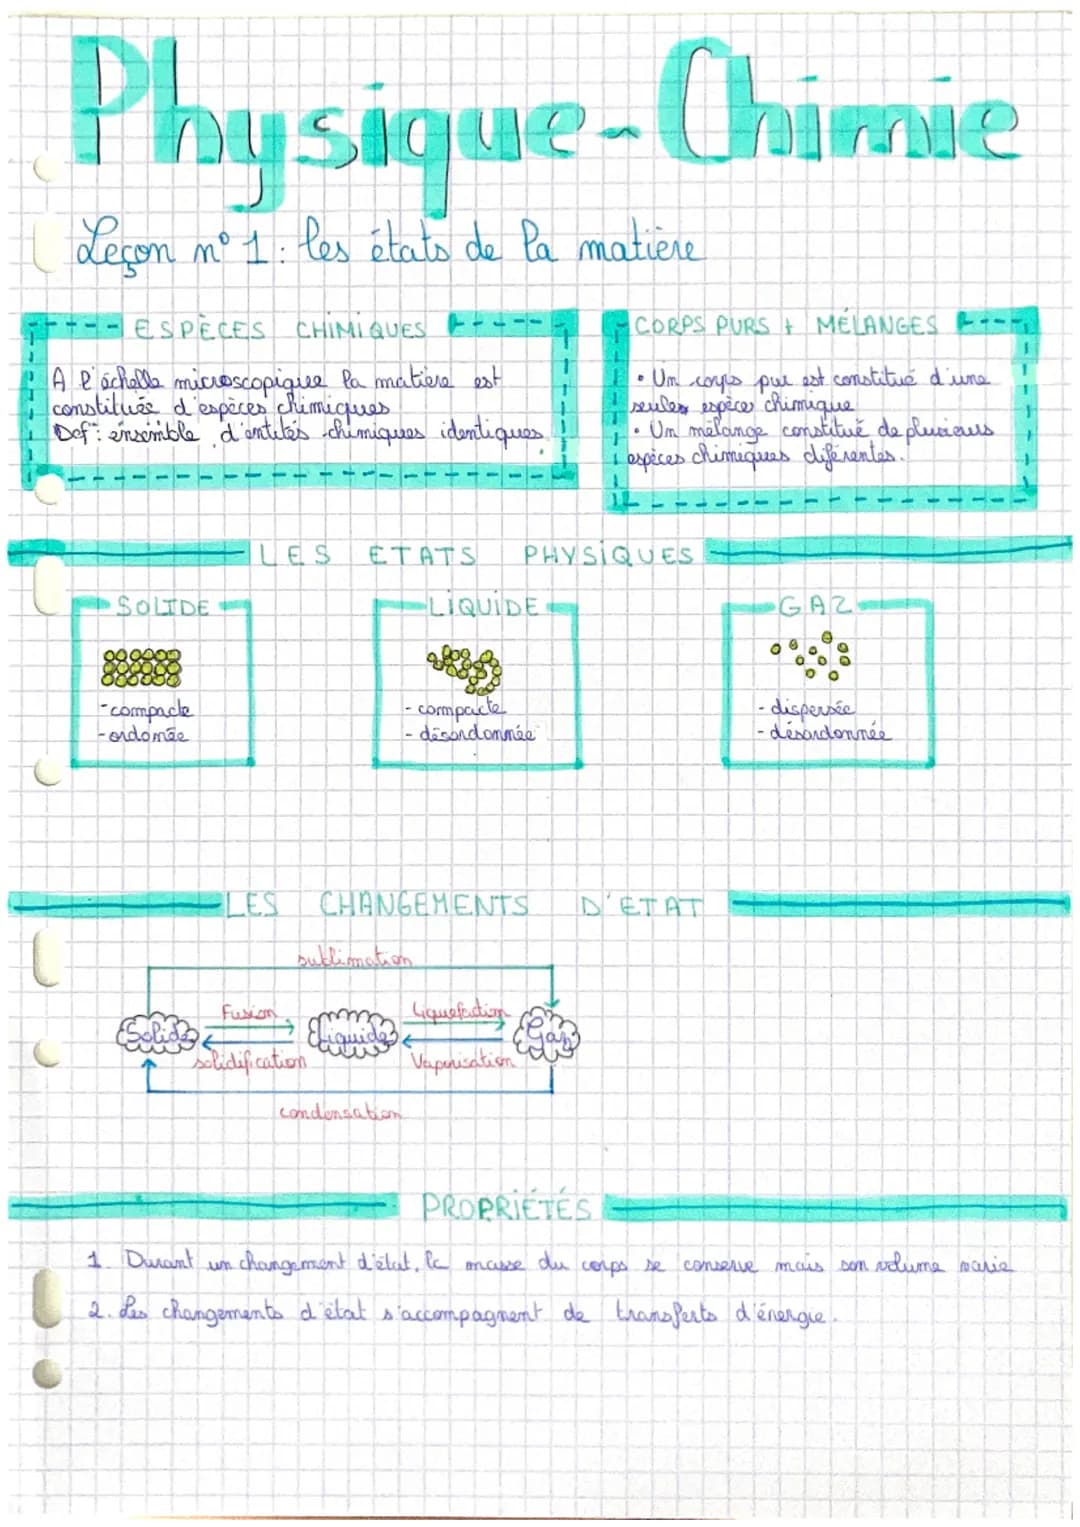 Physique-Chimie
Leçon n° 1 : les états de la matière
ESPÈCES CHIMIQUES
A l'échelle microscopique la matière est
constituée d'espèces chimiques
Def : ensemble d'entités chimiques identiques.
CORPS PURS + MÉLANGES
• Un corps pur est constitué d'une
seules espèces chimique
• Un mélange constitué de plusieurs
espèces chimiques diférentes.
LES ETATS PHYSIQUES
SOLIDE
- compacte
- ordonnée
LIQUIDE
- compacte
- désordonnée
GAZ
- dispersée
- désordonnée
LES CHANGEMENTS D'ETAT
sublimation
Fusion
Liquefaction
Solide
Liquide
Gaz
solidification
Vaporisation
condensation
PROPRIÉTÉS
1. Durant un changement d'état, la masse du corps se conserve mais son volume varie
2. Les changements d'état s'accompagnent de transferts d'énergie.